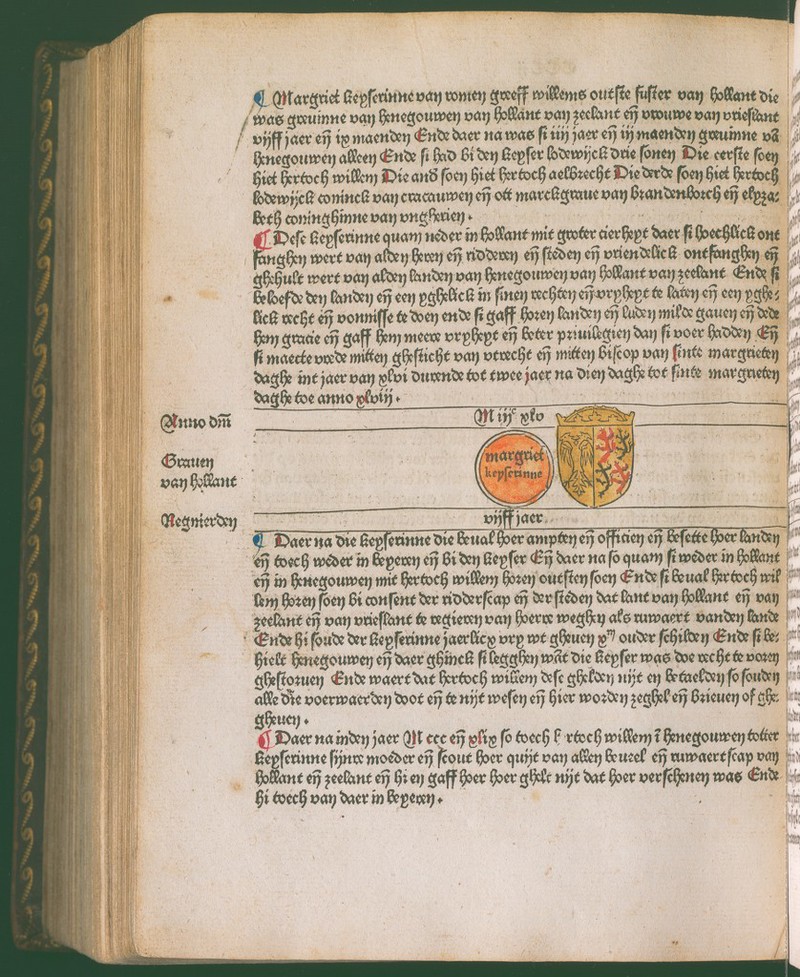 ¶ Margriet keyserinne van romen greeff willems outste suster van hollant die
was greuinne van henegouwen van hollant van zeelant eñ vrouwe van vrieslant
vijff jaer eñ ix maenden Ende daer na was si iiij jaer eñ iij maenden greuinne vā
henegouwen alleen Ende si had bi den keyser lodewijck drie sonen Die eerste soen
hiet hertoch willem Die and soen hiet hertoch aelbrecht Die derde soen hiet hertoch
lodewijck coninck van cracauwen eñ ott marckgraue van brandenborch eñ elyza⸗
beth coninghinne van vngherien.
¶ Dese keyserinne quam neder in hollant mit groter cierheyt daer si hoechlick ont
fanghen wert van alden heren eñ ridderen eñ steden eñ vriendelick ontfanghen eñ
ghehult wert van alden landen van henegouwen van hollant van zeelant Ende si
beloefde den landen eñ een yghelick in sinen rechten eñ vryheyt te laten eñ een yghe⸗
lick recht eñ vonnisse te doen ende si gaff horen landen eñ luden milde gauen eñ dede
hem gracie eñ gaff hem meere vryheyt eñ beter priuilegien dan si voer hadden Eñ
si maecte vrede mitten ghesticht van vtrecht eñ mitten biscop van sinte margrieten
daghe int jaer van xlvi durende tot twee jaer na dien daghe tot sinte margrieten
daghe toe anno xlviij.
Anno dm̄
M iijc xlv
Grauen
van hollant
margriet
keyserinne
Regnierden
vijff jaer
¶ Daer na die keyserinne die beual hoer ampten eñ officien eñ besette hoer landen
eñ toech weder in beyeren eñ bi den keyser Eñ daer na so quam si weder in hollant
eñ in henegouwen mit hertoch willem horen outsten soen Ende si beual hertoch wil
lem horen soen bi consent der ridderscap eñ der steden dat lant van hollant eñ van
zeelant eñ van vrieslant te regieren van hoerre weghen als ruwaert vanden lande
Ende hi soude der keyserinne jaerlicx vry wt gheuen xm ouder schilden Ende si be⸗
hielt henegouwen eñ daer ghinck si legghen wāt die keyser was doe recht te voren
ghestoruen Ende waert dat hertoch willem dese ghelden nijt en betaelden so souden
alle die voerwaerden doot eñ te nijt wesen eñ hier worden zeghel eñ brieuen of ghe⸗
gheuen.
¶ Daer na inden jaer M ccc eñ xlix so toech hertoch willem ī henegouwen totter
keyserinne sijnre moeder eñ scout hoer quijt van allen beueel eñ ruwaertscap van
hollant eñ zeelant eñ hi en gaff hoer hoer ghelt nijt dat hoer verschenen was Ende
hi toech van daer in beyeren.